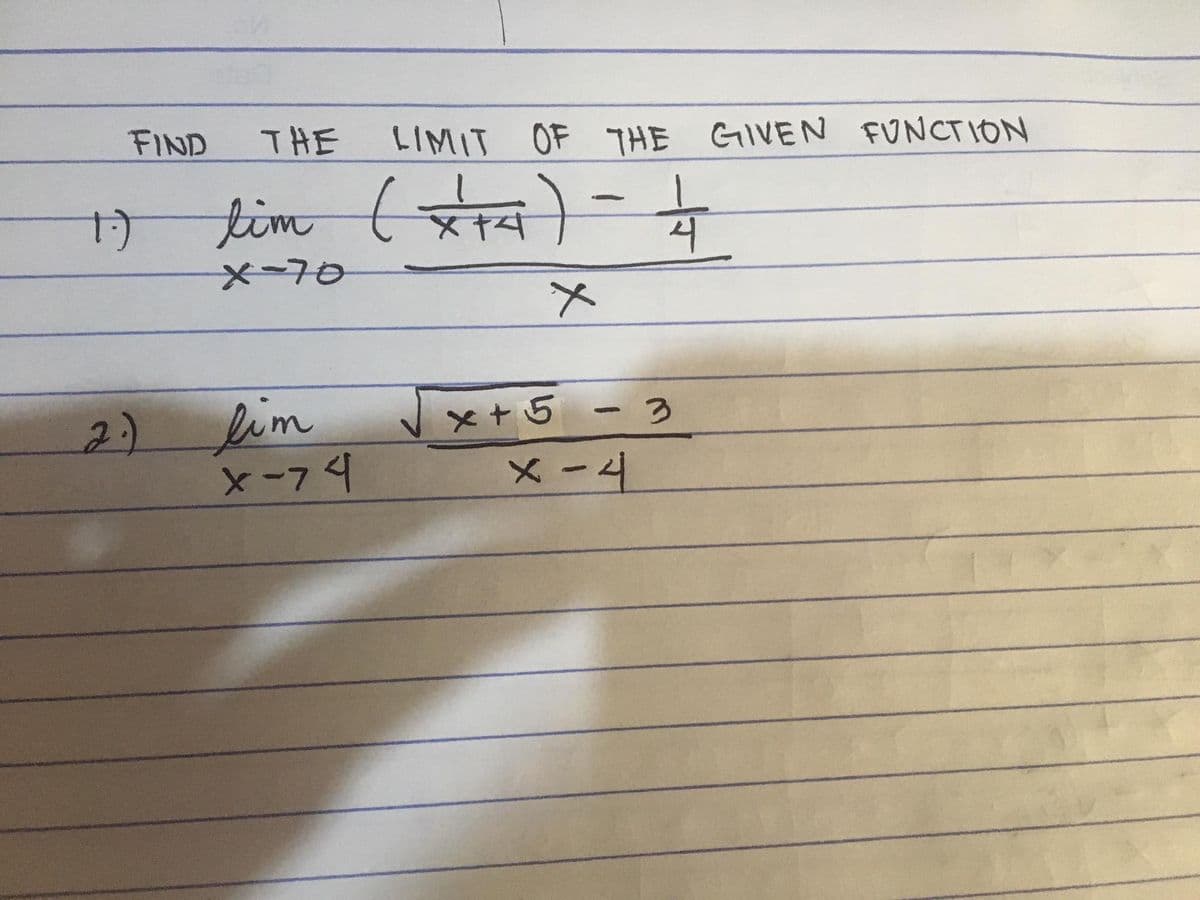 FIND THE LIMIT OF THE GIVEN FUNCTION
1.) lim (1/(x+4)) - 1/4
x->0 x
2.) lim √x+5 - 3
x->4 x-4